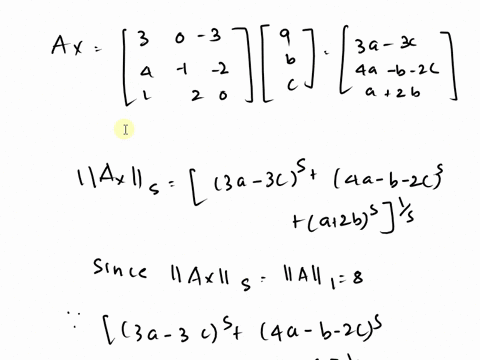 Ax = [3 0 -3; 4 -1 -2; 1 2 0] [a; b; c] = [3a - 3c; 4a - b - 2c; a + 2b]
||Ax||_5 = [(3a-3c)^5 + (4a-b-2c)^5
+(a+2b)^5]^1/5
Since ||Ax||_5 = ||A||_1 = 8
∵ [(3a-3c)^5 + (4a-b-2c)^5